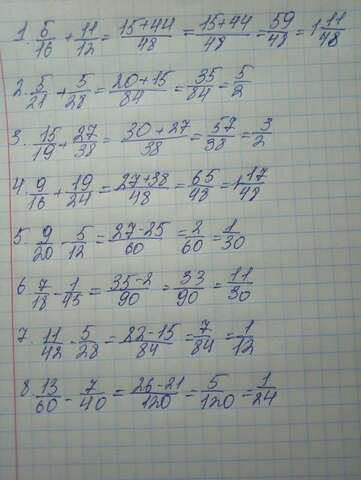 1. 5/16 + 11/12 = 15+44/48 = 15+44/48 = 59/48 = 1 11/48
2. 5/21 + 5/28 = 20+15/84 = 35/84 = 5/2
3. 15/19 + 27/38 = 30+27/38 = 57/38 = 3/2
4. 9/16 + 19/24 = 27+38/48 = 65/48 = 1 17/48
5. 9/20 - 5/12 = 27-25/60 = 2/60 = 1/30
6. 7/18 - 1/45 = 35-2/90 = 33/90 = 11/30
7. 11/42 - 5/28 = 22-15/84 = 7/84 = 1/12
8. 13/60 - 7/40 = 26-21/120 = 5/120 = 1/24